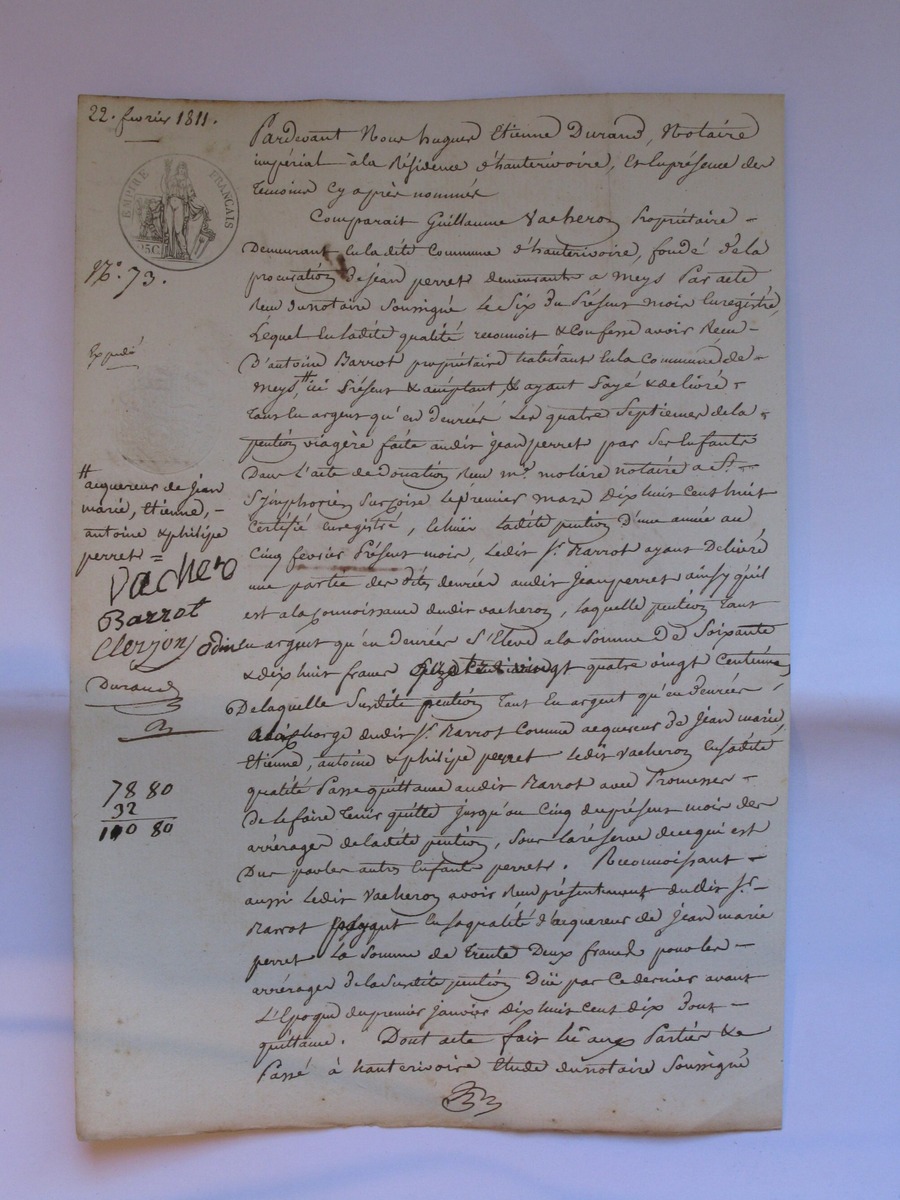 22. fevrier 1811.
EMPIRE FRANÇAIS
25C
N.° 73.
Expedié
#
acquereur de jean
marié, Etienne, –
antoine & philipe
perret =
Vachero
Barrot
Clerjon
Durand
78 80
32
110 80
Pardevant Nous hugues Etienne Durand, Notaire
impérial à la Résidence d'hauterivoire, En la présence des
temoins Cy après nommés
Comparait Guillaume Vacheron Propriétaire
Demeurant En ladite Commune d'hauterivoire, fondé de la
procuration de jean perret demeurant a meys Par acte
Reçu du notaire Soussigné le Six du Présent mois Enregistré,
Lequel En ladite qualité reconnoit & confesse avoir Reçu
D'antoine Barrot propriétaire habitant En la Commune de
meys, # ici Présent & acceptant, & ayant Payé & delivré
tant En argent qu'en denrées Les quatre Septiemes de la
pention viagère faite audit jean perret par Ses Enfants
Dans L'acte de Donation Reçu m.e molière notaire a S.t
Symphorien Sur Coise le premier mars dix huit cent huit
Certifié Enregistré, ladite pention D'une année au
Cinq fevrier Présent mois, Ledit S.r Barrot ayant Delivré
une partie des dites denrées audit jean perret ainsy qu'il
est a la Connoissance dudit vacheron, laquelle pention tant
En argent qu'en denrées S'Eleve a la Somme De Soixante
& dix huit francs quatre vingt Centimes
De laquelle Susdite pention tant En argent qu'en denrées
a la Charge dudit S.r Barrot Comme acquereur de jean marie,
Etienne, antoine & philipe perret Ledit Vacheron En Sadite
qualité Passe quittance audit Barrot avec Promesse
De le faire tenir quitte jusqu'au Cinq du présent mois des
arrérages de ladite pention, Sous la réserve de ce qui est
Dut par les autres Enfants perret. Reconnoissant
aussi Ledit Vacheron avoir Reçu présentement dudit S.r
Barrot En Sa qualité d'acquereur de jean marie
perret La Somme de trente Deux francs pour les
arrérages de la Susdite pention Düe par Ce dernier avant
L'Epoque du premier janvier dix huit cent dix Dont
quittance. Dont acte fait lû aux Parties & 
Passé à hauterivoire Etude du notaire Soussigné